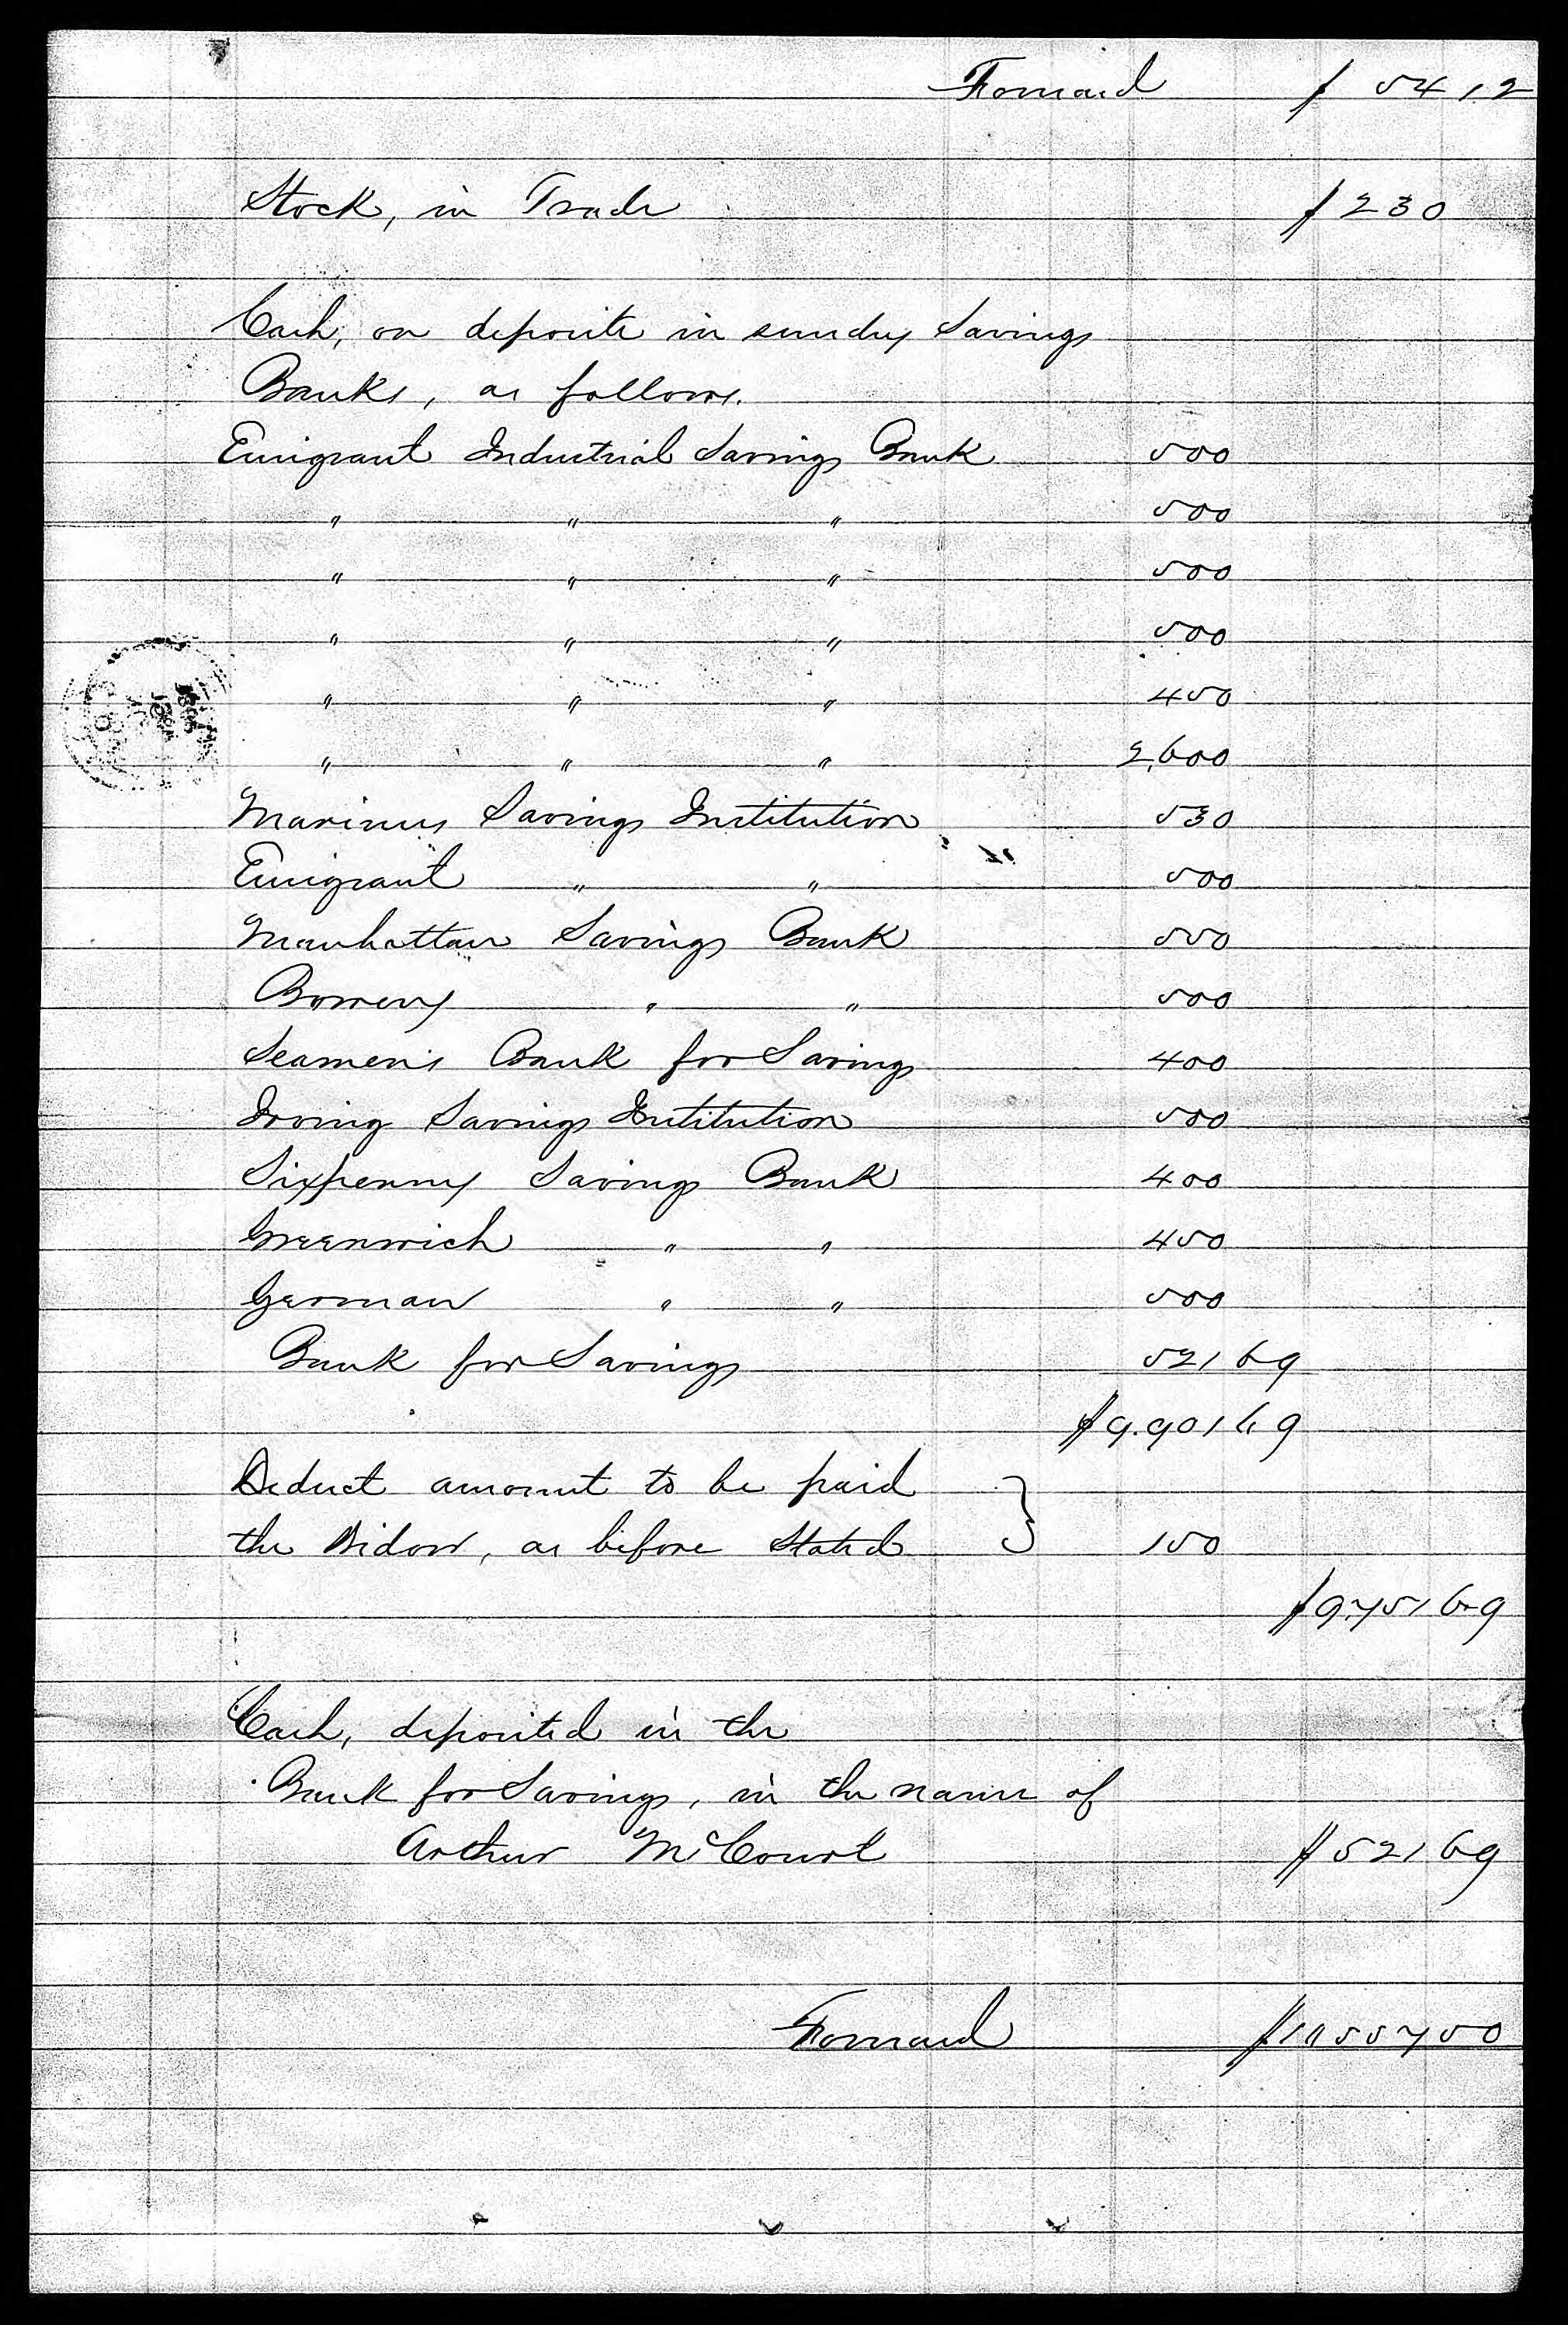 Forward $ 54 12
Stock, in Trade $ 230
Cash, on deposite in sundry Savings
Banks, as follows.
Emigrant Industrial Savings Bank 500
" " " 500
" " " 500
" " " 500
" " " 450
" " " 2,600
Mariners Savings Institution 530
Emigrant " " 500
Manhattan Savings Bank 550
Bowery " " 500
Seamen's Bank for Savings 400
Irving Savings Institution 500
Sixpenny Savings Bank 400
Greenwich " " 450
German " " 500
Bank for Savings 521 69
$9.901 69
Deduct amount to be paid
the Widow, as before Stated } 150
$9.751 69
Cash, deposited in the
Bank for Savings, in the name of
Arthur McCourt $521 69
Forward $10557 50